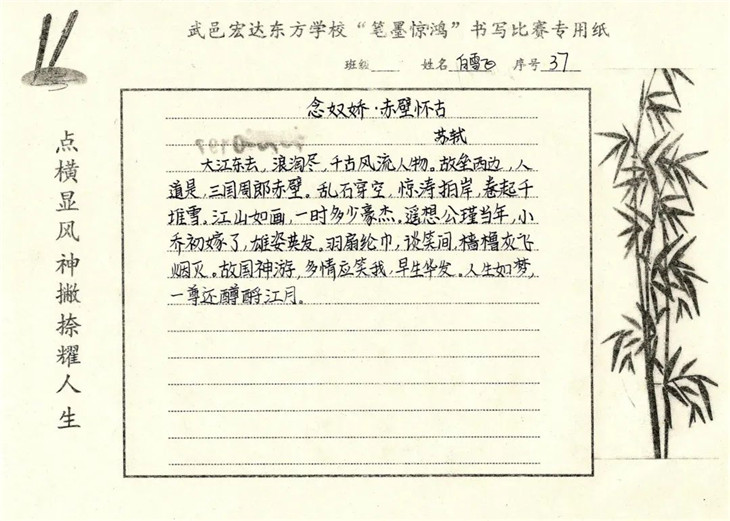 武邑宏达东方学校“笔墨惊鸿”书写比赛专用纸
班级 姓名 白雪飞 序号 37
点横显风神撇捺耀人生
念奴娇·赤壁怀古
苏轼
大江东去，浪淘尽，千古风流人物。故垒西边，人
道是，三国周郎赤壁。乱石穿空，惊涛拍岸，卷起千
堆雪。江山如画，一时多少豪杰。遥想公瑾当年，小
乔初嫁了，雄姿英发。羽扇纶巾，谈笑间，樯橹灰飞
烟灭。故国神游，多情应笑我，早生华发。人生如梦，
一尊还酹江月。